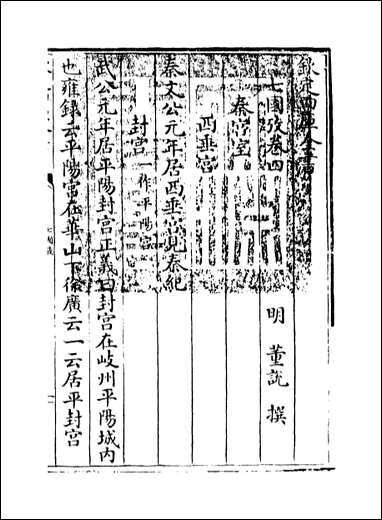 欽定四庫全書
七國攷卷四
明 董說 撰
秦宮室
西垂宮
秦文公元年居西垂宮見秦紀
封宮一作平陽宮
武公元年居平陽封宮正義曰封宮在岐州平陽城内
也雍録云平陽宮在華山下徐廣云一云居平封宮